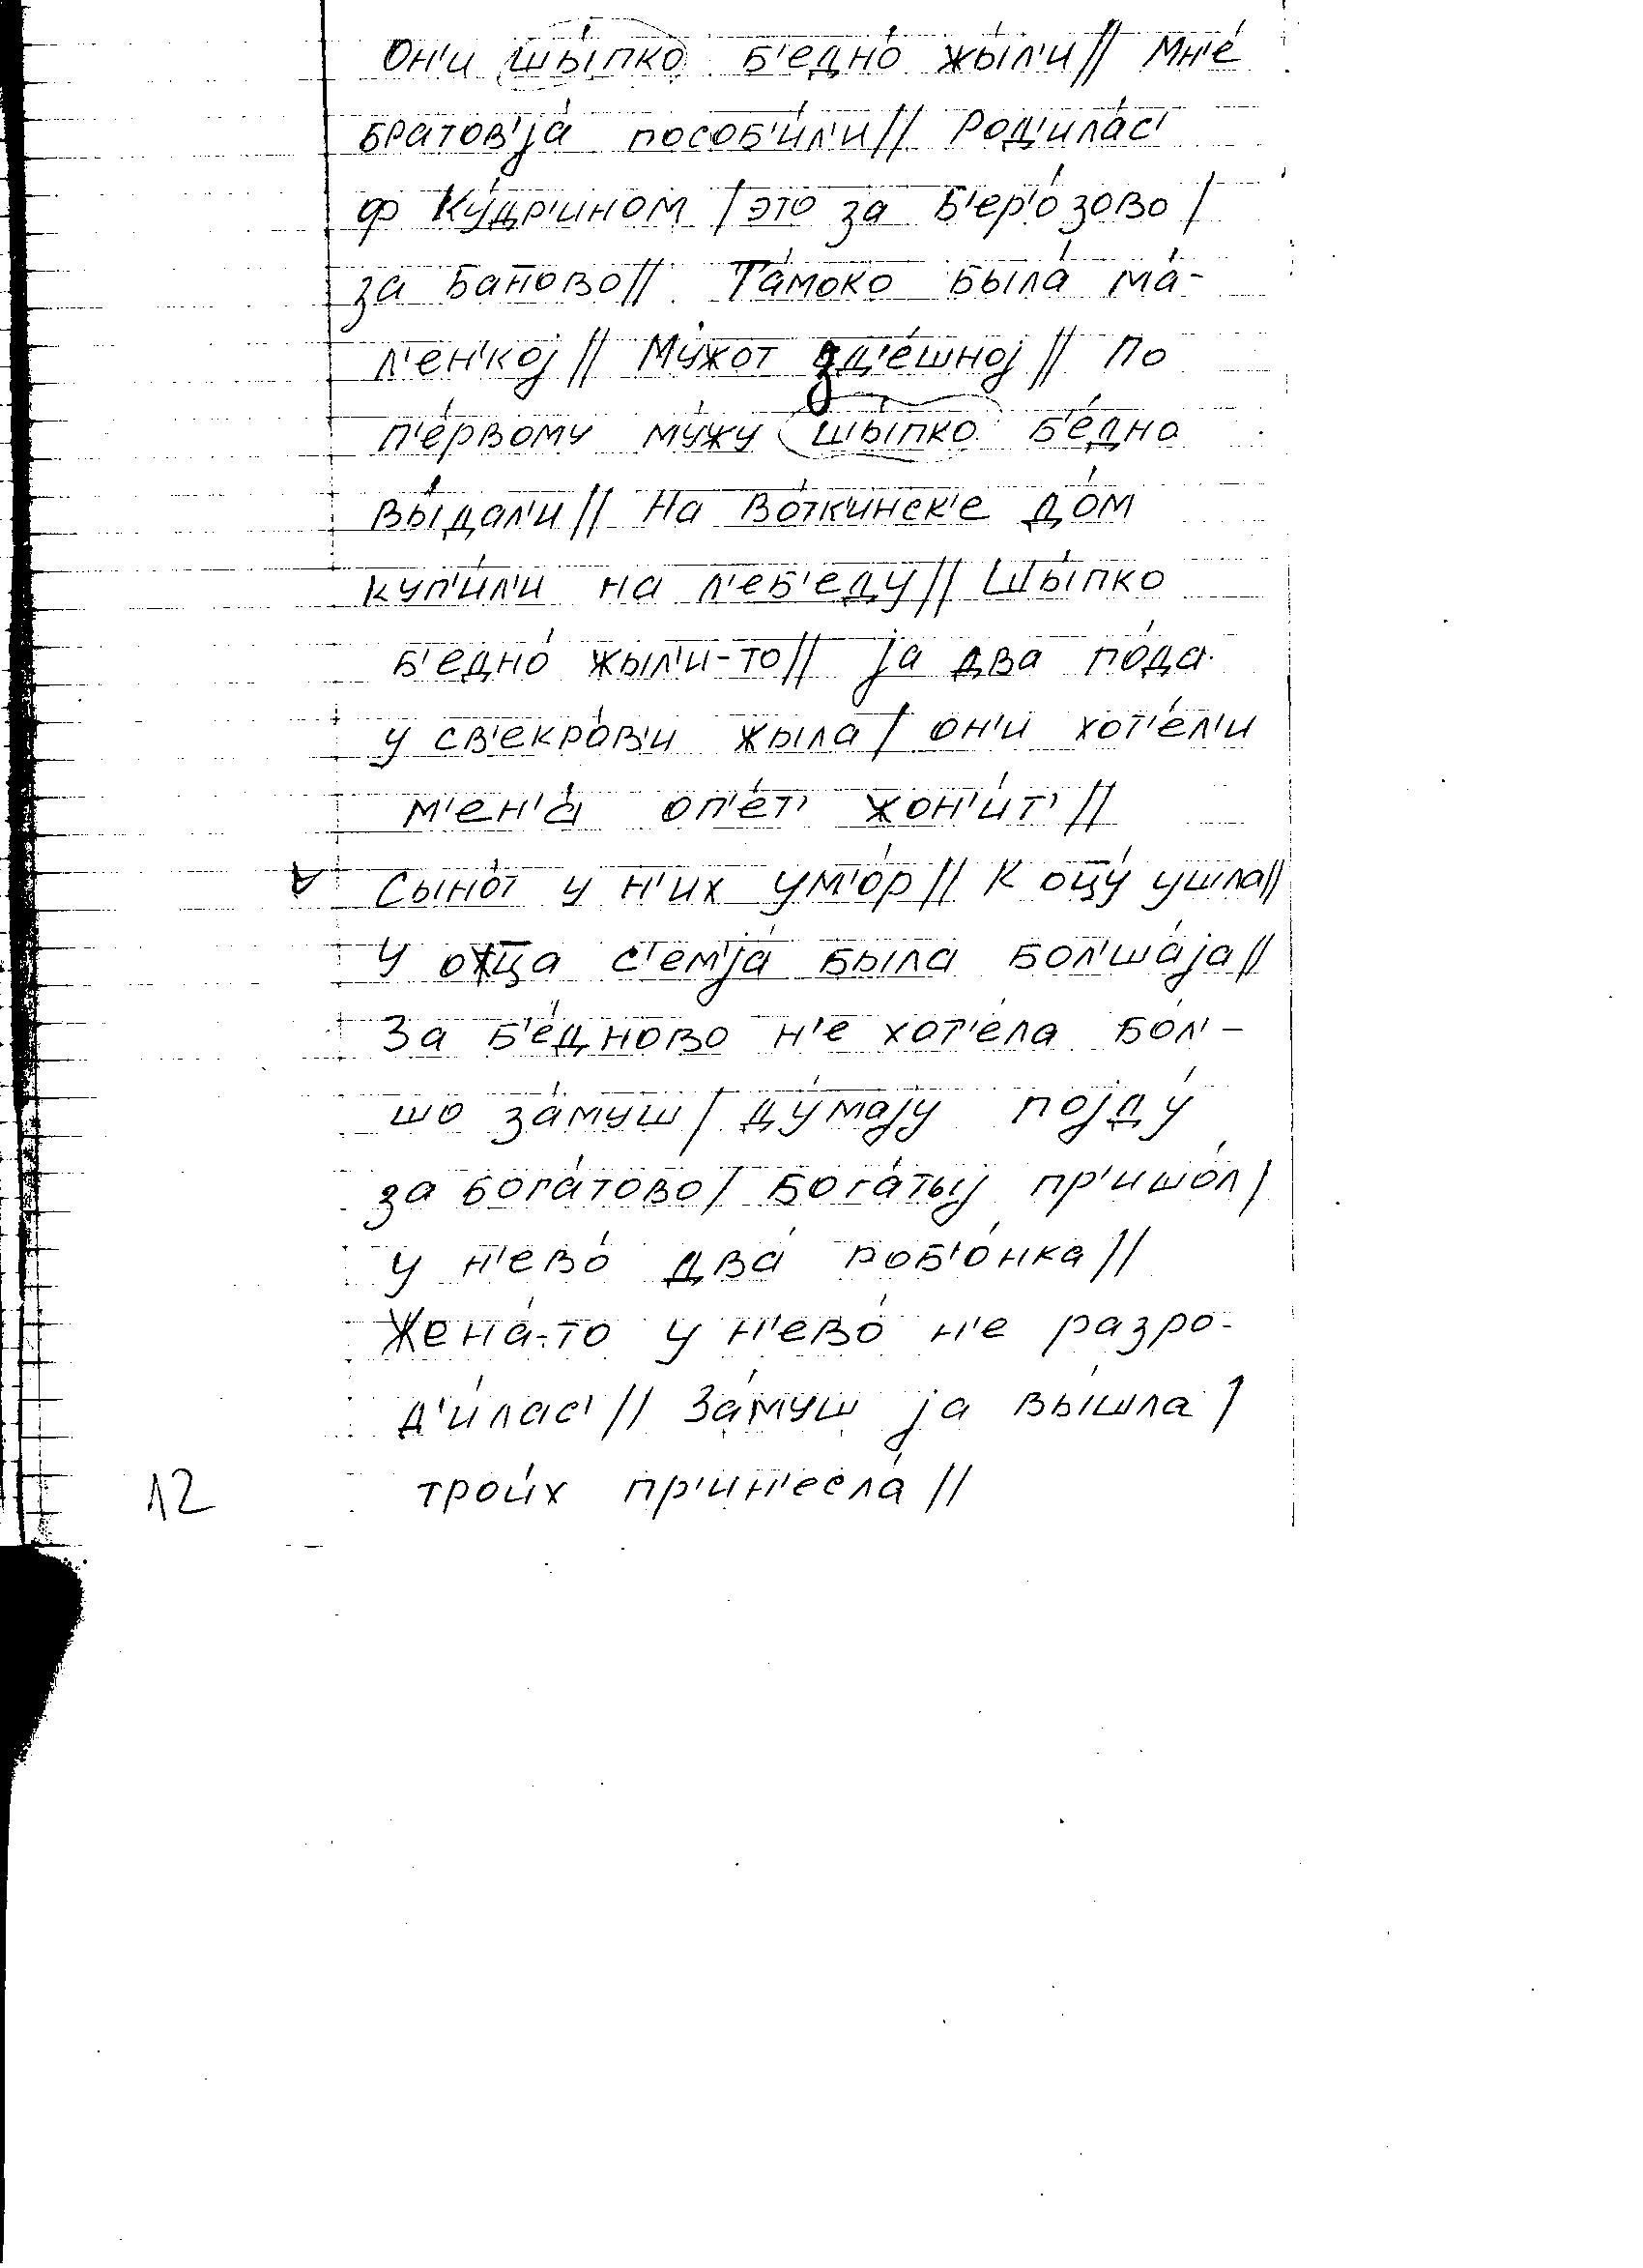 Он'и шы́пко б'едно́ жы́л'и// Мн'е́
братов'jа́ пособ'и́л'и// Род'ила́с'
ф Ку́др'ином / это за Б'ер'о́зово /
за Баново// Та́моко была́ ма́-
л'ен'кој// Му́жот зд'е́шној// По
п'е́рвому му́жу шы́пко б'е́дно
вы́дал'и// На Во́тк'инск'е до́м
куп'и́л'и на л'еб'еду// Шы́пко
б'едно́ жыл'и-то// jа два го́да
у св'екро́в'и жыла́/ он'и хот'е́л'и
м'ен'а́ оп'е́т' жон'и́т'//
Сыно́т у н'их ум'о́р// К оцу́ ушла//
У оца с'ем'jа́ была бол'ша́jа//
За б'е́дново н'е хот'е́ла бо́л'-
шо за́муш/ ду́маjу поjду́
за бога́тово/ Бога́тыj пр'ишо́л/
у н'ево́ два́ роб'о́нка//
Жена́-то у н'ево́ н'е разро-
д'и́лас'// За́муш jа вы́шла /
трои́х пр'ин'есла́//
12